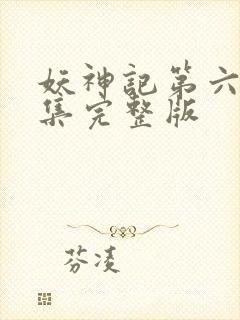 妖神記第六
集完整版
芬凌